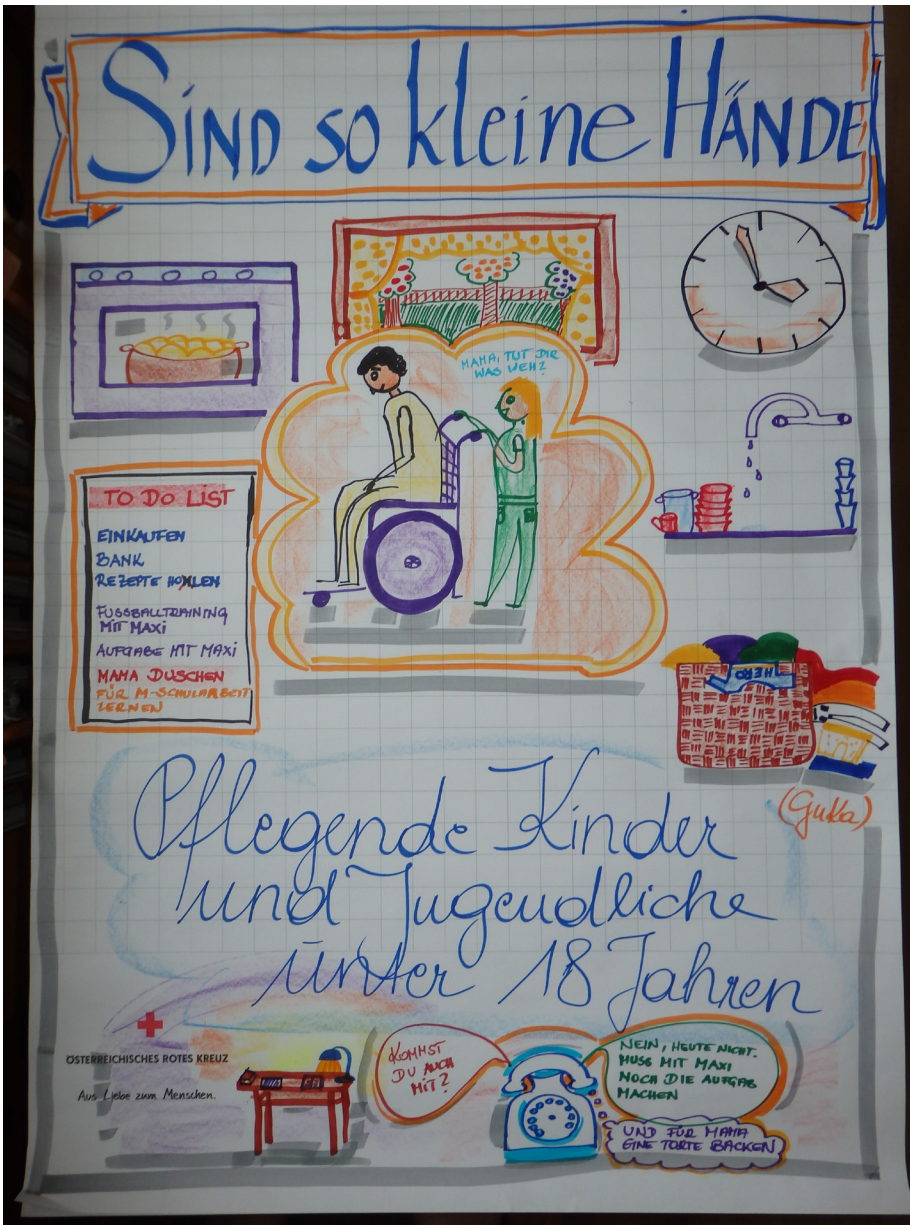 SIND SO kleine HÄNDE
MAMA, TUT DIR
WAS WEH?
TO DO LIST
EINKAUFEN
BANK
REZEPTE HOLEN
FUSSBALLTRAINING
MIT MAXI
AUFGABE MIT MAXI
MAMA DUSCHEN
FÜR M-SCHULARBEIT
LERNEN
HERO
(GuKa)
Pflegende Kinder
und Jugendliche
unter 18 Jahren
ÖSTERREICHISCHES ROTES KREUZ
Aus Liebe zum Menschen.
KOMMST
DU AUCH
MIT?
NEIN, HEUTE NICHT.
MUSS MIT MAXI
NOCH DIE AUFGAB
MACHEN
UND FÜR MAMA
EINE TORTE BACKEN